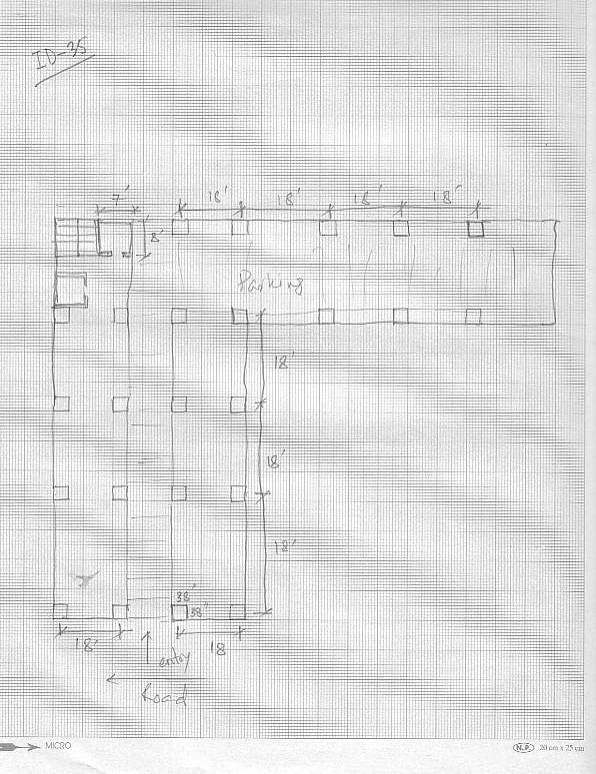 ID-35
7'
18' 18' 18' 18'
8'
Parking
18'
18'
18'
38'
38"
18' 18
entry
Road
MICRO N.P. 20 cm x 25 cm